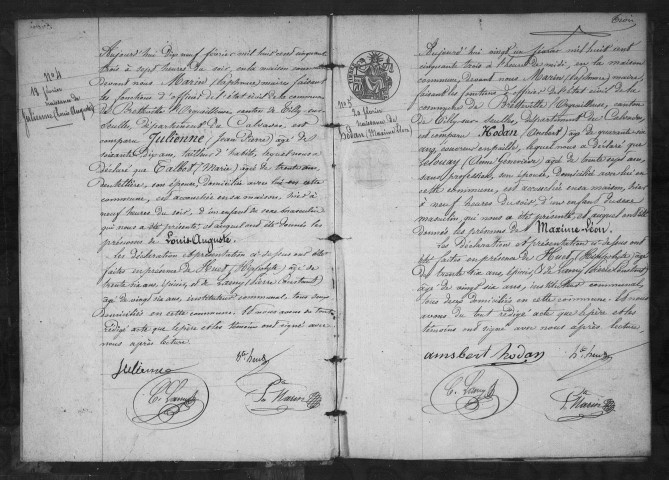 N° 4
18 février
naissance de
Julienne (Louis Auguste)
Aujourd'hui Dix neuf février mil huit cent cinquante
trois à sept heures du soir, en la maison commune
Devant nous Marin (Stéphane) maire faisant
les fonctions d'officier de l'état civil de la commune
de Bretteville l'Orgueilleuse, canton de Tilly-sur-
Seulles Département du Calvados, est
comparu Julienne (Jean Pierre) âgé de
ans, tailleur d'habits, lequel nous a
Déclaré que Talbot (Marie) âgée de trente ans,
Dentellière, son épouse, Domiciliée avec lui en cette
commune, est accouchée en sa maison, hier à
neuf heures du soir, d'un enfant de sexe masculin
qui nous a été présenté, et auquel ont été Donnés les
prénoms de Louis-Auguste.
Les Déclaration et présentation ci-dessus ont été
faites en présence de Huet (Hippolyte) âgé de
trente six ans, épicier, et de Lamy (Pierre Constant)
âgé de vingt six ans, instituteur communal, tous deux
Domiciliés en cette commune. Et nous avons du tout
rédigé acte que le père et les témoins ont signé avec
nous après lecture.
Julienne
hte huet
C. Lamy
Sne Marin
Trois
N° 5
20 février
naissance de
Hodan (Maxime Léon)
Aujourd'hui vingt un février mil huit cent
cinquante trois à heures du midi, en la maison
commune, devant nous Marin (Stéphane) maire,
faisant les fonctions d'officier de l'état civil de la
commune de Bretteville l'Orgueilleuse, canton
de Tilly-sur-Seulles, département du Calvados,
est comparu Hodan (Ambert) âgé de quarante-cinq
ans, couvreur en paille, lequel nous a déclaré que
(Anne Geneviève) âgée de trente sept ans,
sans profession, son épouse, Domiciliée avec lui en
cette commune, est accouchée en sa maison, hier
à neuf heures du soir, d'un enfant du sexe
masculin, qui nous a été présenté, et auquel ont été
donnés les prénoms de Maxime-Léon.
Les Déclaration et présentation ci-dessus ont
été faites en présence de Huet (Hippolyte) âgé
de trente six ans, épicier, & de Lamy (Pierre Constant)
âgé de vingt six ans, instituteur communal,
tous deux domiciliés en cette commune. Et nous
avons du tout rédigé acte que le père et les
témoins ont signé avec nous après lecture.
ambert hodan
hte huet
C. Lamy
Sne Marin